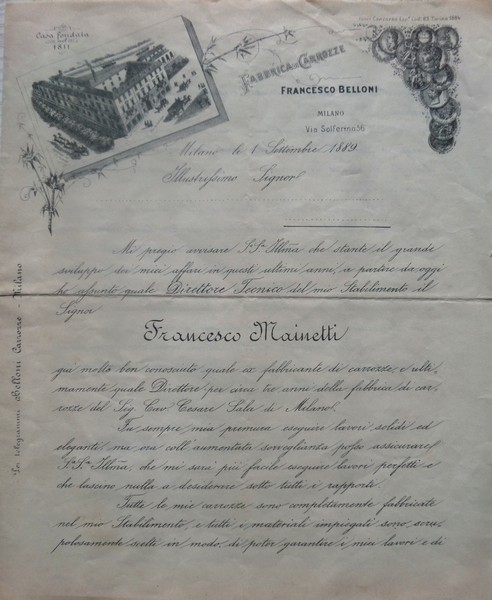 Casa fondata
1811
FABBRICA DI CARROZZE
FRANCESCO BELLONI
MILANO
Via Solferino 56
Milano le 1 Settembre 1889
Illustrissimo Signor
Mi pregio avvisare S.S. Illma che stante il grande
sviluppo dei miei affari in questi ultimi anni, a partire da oggi
ho assunto quale Direttore Tecnico del mio Stabilimento il
Signor
Francesco Mainetti
qui molto ben conosciuto quale ex fabbricante di carrozze, e ulti,
mamente quale Direttore per circa tre anni della fabbrica di car,
rozze del Sig. Cav. Cesare Sala di Milano.
Fu sempre mia premura eseguire lavori solidi ed
eleganti, ma ora coll'aumentata sorveglianza posso assicurare
S.S. Illma, che mi sarà più facile eseguire lavori perfetti e
che lascino nulla a desiderare sotto tutti i rapporti.
Tutte le mie carrozze sono completamente fabbricate
nel mio Stabilimento, e tutti i materiali impiegati sono scru,
polosamente scelti in modo, di poter garantire i miei lavori e di
Per telegrammi Belloni Carrozze - Milano